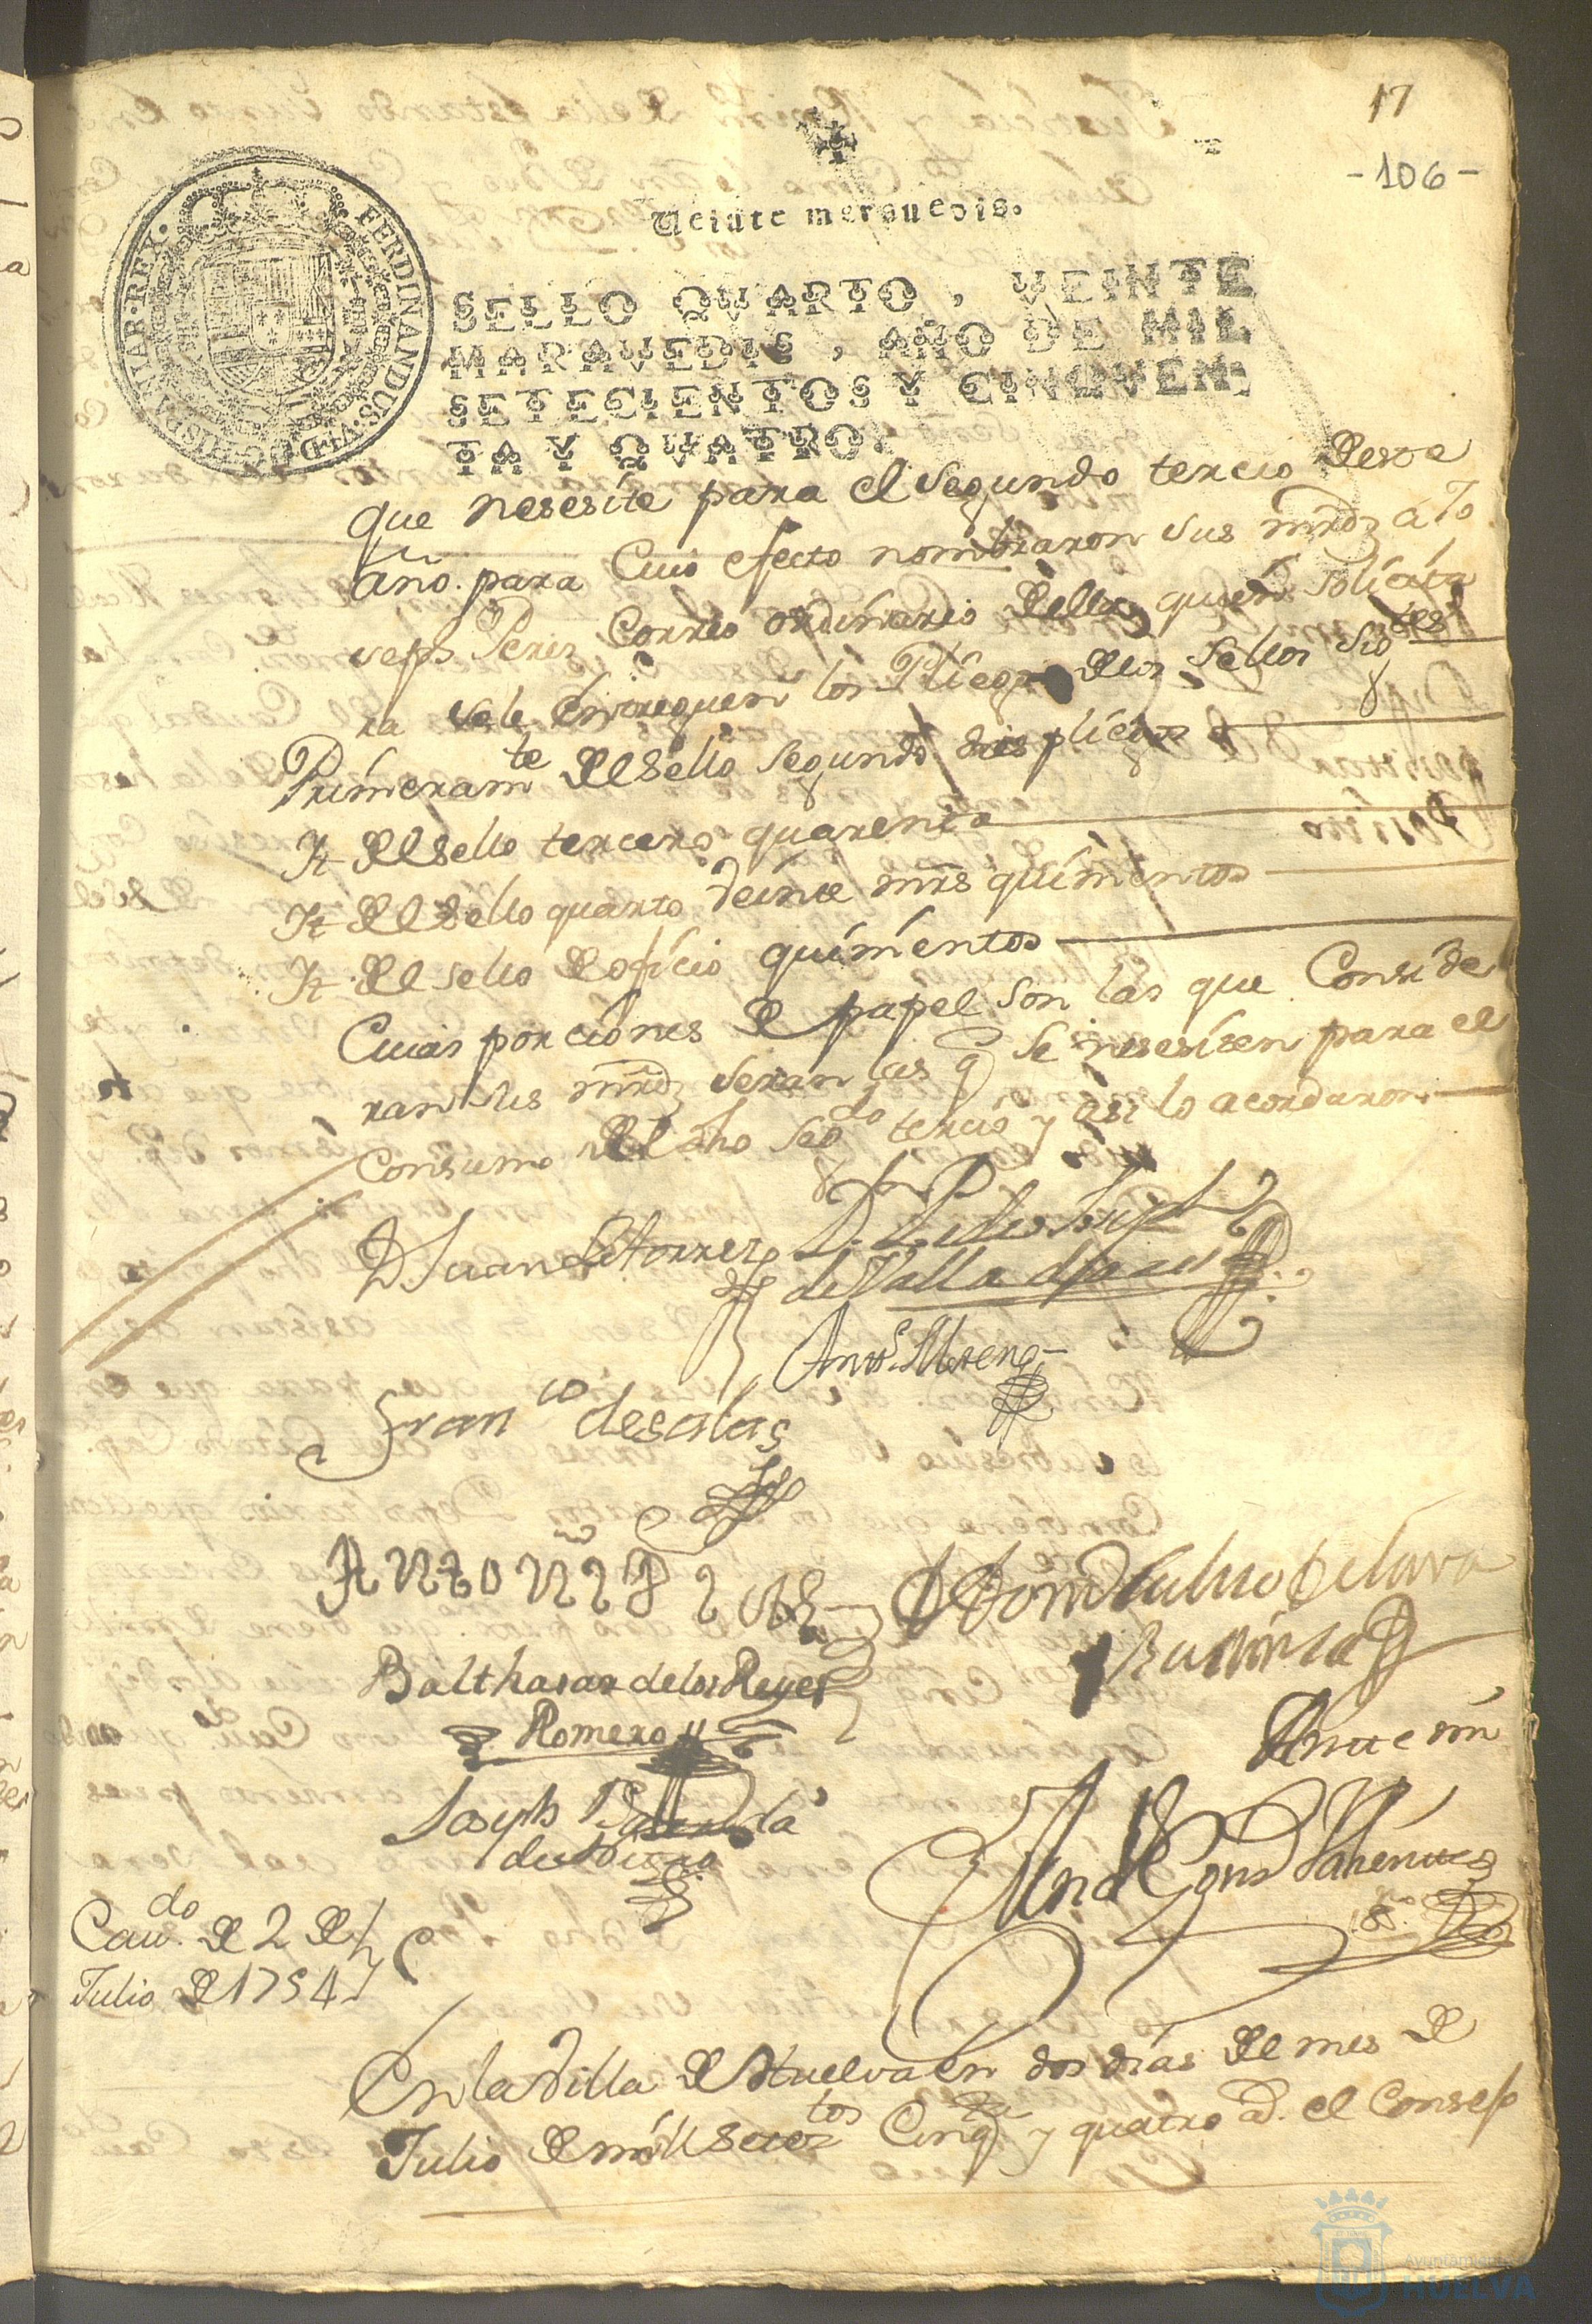 17
-106-
Veinte marauedis.
FERDINANDUS.VI.D.G.HISPANIAR.REX.
SELLO QVARTO, VEINTE
MARAVEDIS, AÑO DE MIL
SETECIENTOS Y CINQVEN
TA Y QVATRO.
que nesesite para el segundo tercio deste
año. para Cuio efecto nombraron sus mrds a Jo
seph Perez Correo ordinario della quien solicita
ra se le entreguen los Pliegos de los sellos
Primeramte del sello segundo dies pliegos
It del sello tercero quarenta
It del sello quarto veinte mrs quinientos
It del sello de oficio quinientos
Cuias porciones de papel son las que Conside
ran sus mrds seran las q se nesesiten para el
Consumo del dho segdo tercio y asi lo acordaron
D Juan de torres
de Valladolid
Anto. Moreno
Franco de salas
Balthasar de los Reyes
Romero
Joseph
Ante mi
Caudo. de 2 de
Julio de 1754
En la Villa de Huelva en dos dias del mes de
Julio de mill setestos Cinqta y quatro as. el Consejo
Ayuntamiento
HUELVA